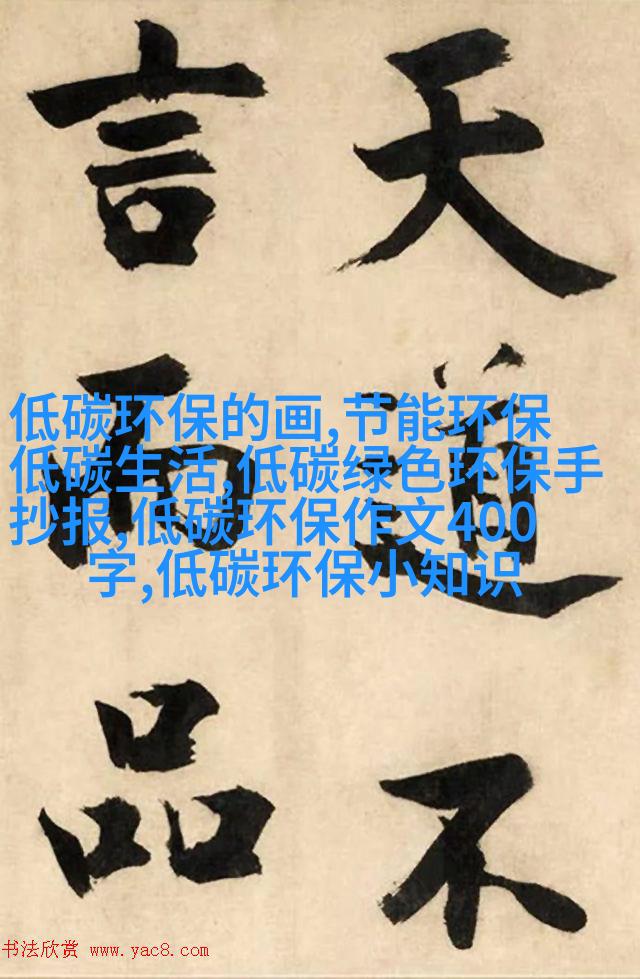 天道不
言而品
低碳环保的画,节能环保
低碳生活,低碳绿色环保手
抄报,低碳环保作文400
字,低碳环保小知识
书法欣赏 www.yac8.com